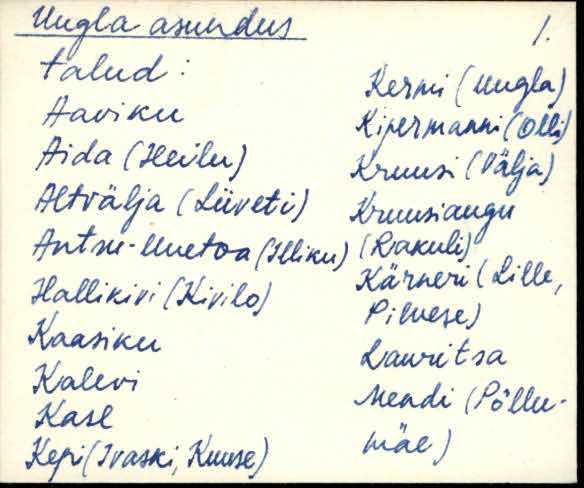 Uugla asundus
1.
talud:
Aaviku
Aida (Heilu)
Altvälja (Liiveti)
Antsu-Uuetoa (Illiku)
Hallikivi (Kivilo)
Kaasiku
Kalevi
Kase
Kepi (Ivaski, Kuuse)
Kermi (Uugla)
Kipermanni (Olli)
Kruusi (Välja)
Kruusiaugu
(Rakuli)
Kärneri (Lille,
Pilvese)
Lauritsa
Mendi (Põllu-
mäe)